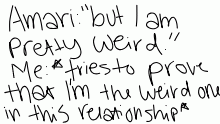 Amari: "but I am
pretty weird."
Me: *tries to prove
that I'm the weird one
in this relationship*